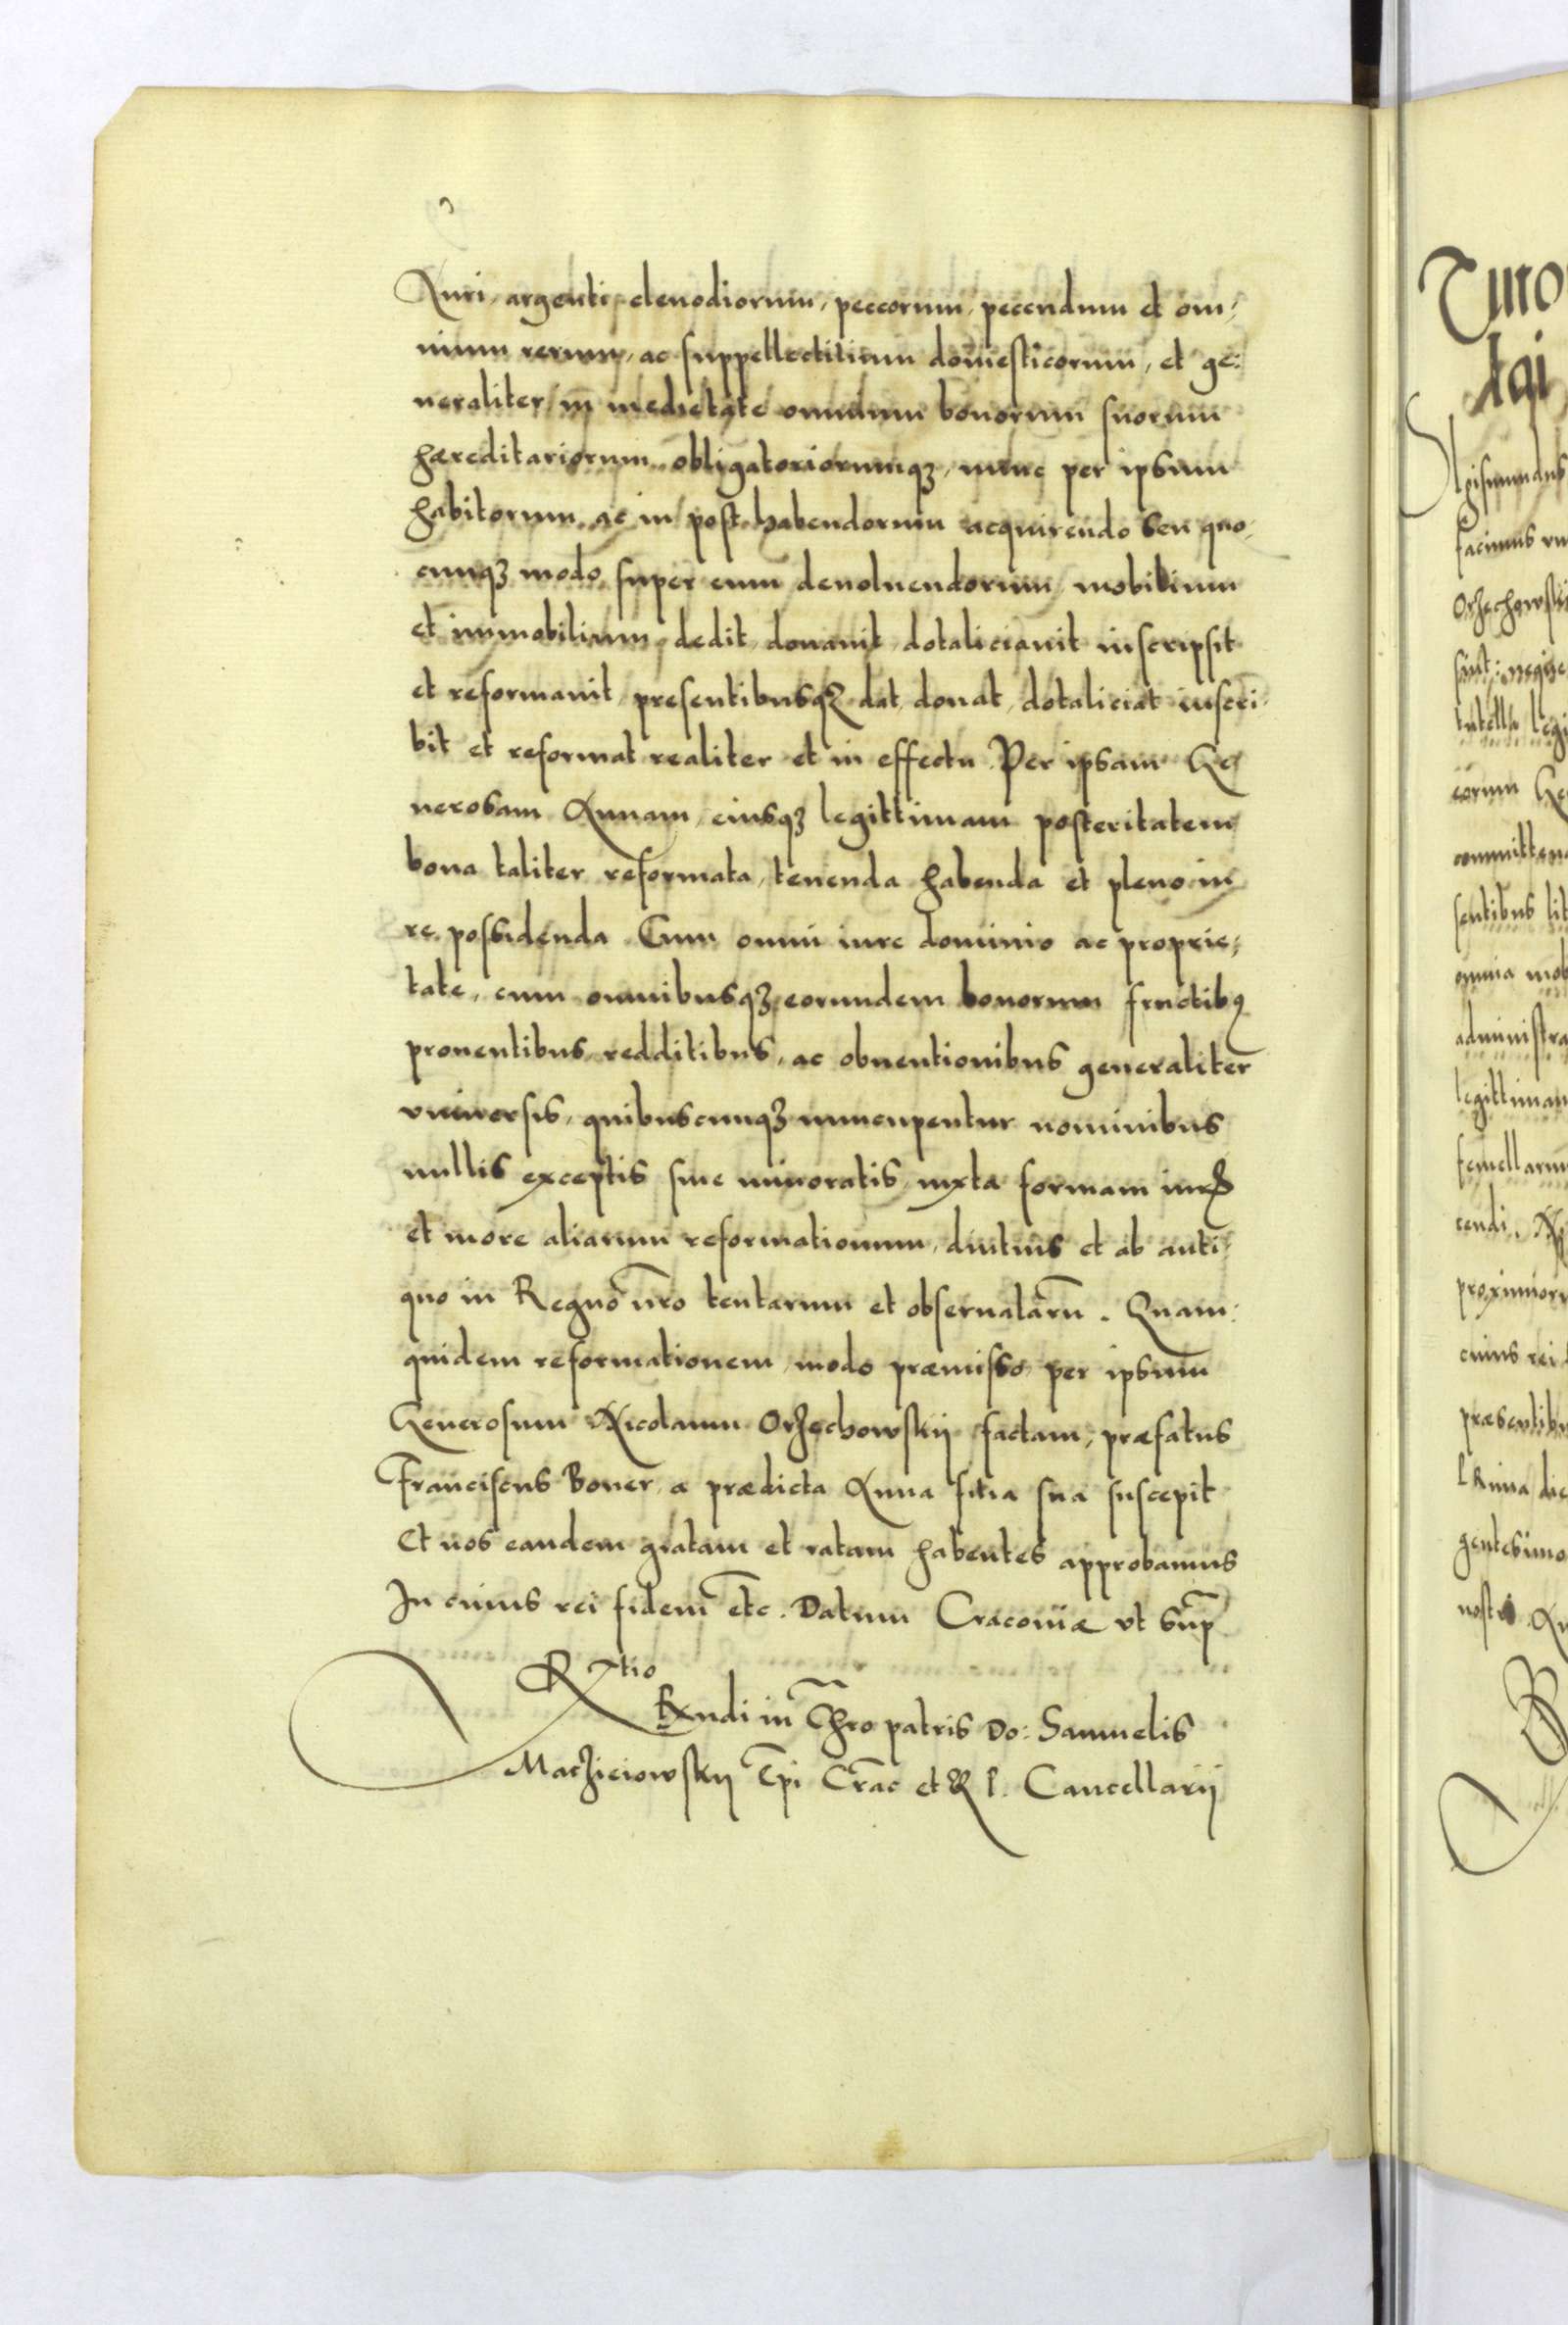 Auri, argenti, clenodiorum, peccorum, pecendum et om:
nium rerum, ac suppellectilium domesticorum, et ge:
neraliter in medietate omnium bonorum suorum
hæreditariorum obligatoriorumqꝫ, nunc per ipsum
habitorum ac in post habendorum acquirendo seu quo:
cunqꝫ modo super eum devoluendorum, mobilium
et immobilium, dedit, donauit, dotaliciauit inscripsit
et reformauit, presentibusqꝫ dat, donat, dotaliciat inscri:
bit et reformat realiter et in effectu. Per ipsam Ge
nerosam Annam, eiusqꝫ legittimam posteritatem
bona taliter reformata, tenenda habenda et pleno iu
re possidenda. Cum omni iure dominio ac proprie:
tate, cum omnibusqꝫ eorundem bonorum fructibꝰ
prouentibus redditibus, ac obuentionibus generaliter
vniuersis, quibuscunqꝫ nuncupentur nominibus
nullis exceptis siue minoratis, iuxta formam iurꝭ
et more aliarum reformationum, diutius et ab anti:
quo in Regno nr̃o tentarum et obseruatarũ. Quam:
quidem reformationem modo præmisso per ipsum
Generosum Nicolaum Orzechowskij factam, præfatus
Franciscus Boner, a prædicta Anna filia sua suscepit
Et nos eandem gratam et ratam habentes approbamus
In cuius rei fidem etc. Datum Cracouiæ vt sup̃
R̃tio
Rx̃ndi in Chr̃o patris Do: Samuelis
Maczieiowskij Ep̃i Crac̃ et R P. Cancellarij
Turo
Sigismundus
facimus vn
Orzechowskij
sint: neqȝe
tutella legi
eorum Ge
committen
sentibus lit
omnia mob
administra
legittiman
femellarum
cendi.
proximiorẽ
cuius rei
præsentibu
gentesimo
nostri